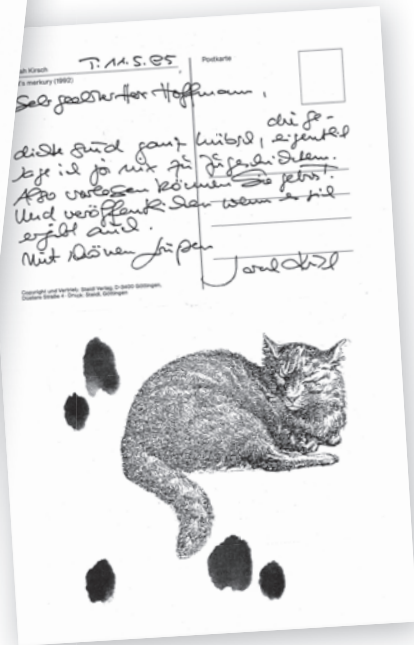 T. 11.5.95
ah Kirsch
Postkarte
's merkury (1992)
Sehr geehrter Herr Hoffmann,
die Ge-
dichte sind ganz hübsch, eigentlich
sage ich ja nix zu Zugeschicktem.
Also vorlesen können Sie getrost.
Und veröffentlichen wenn es sich
ergibt auch.
Mit schönen Grüßen
Sarah Kirsch
Copyright und Vertrieb: Steidl Verlag, D-3400 Göttingen,
Düstere Straße 4 · Druck: Steidl, Göttingen